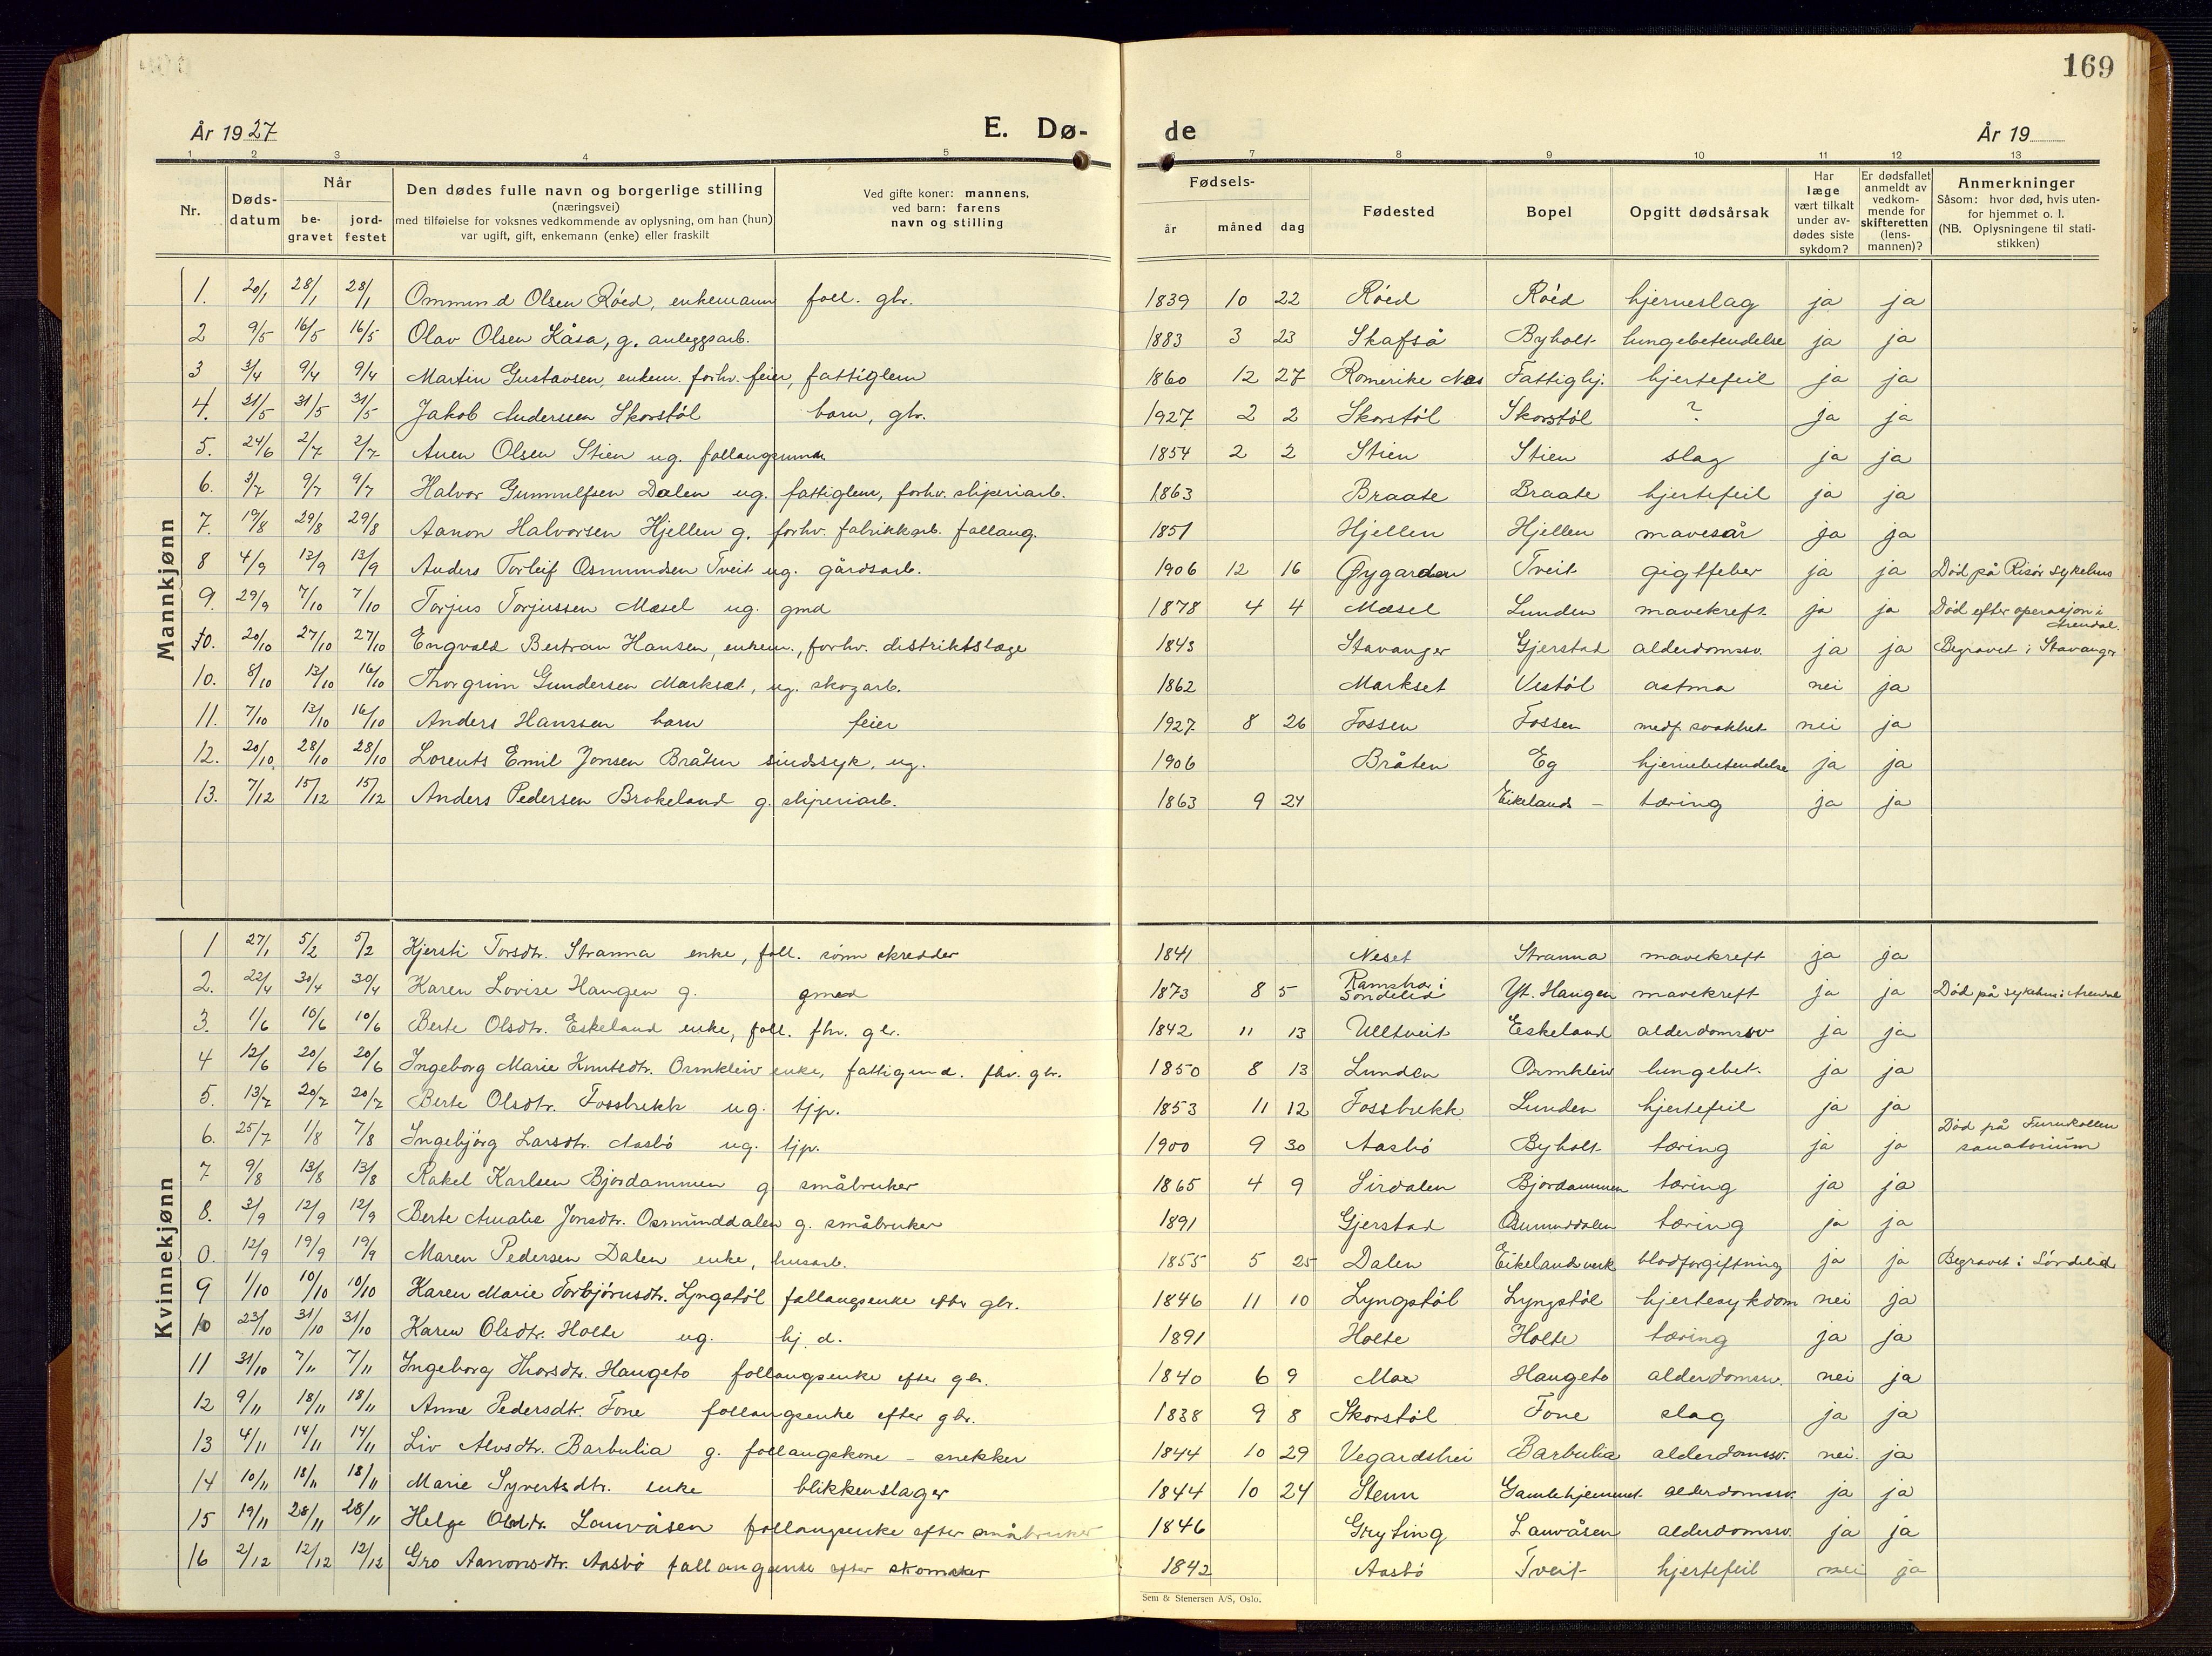 169
År 1927 E. Dø- de År 19
1 2 3 4 5 6 7 8 9 10 11 12 13
Nr.
Døds-
datum
Når
be-
gravet
jord-
festet
Den dødes fulle navn og borgerlige stilling
(næringsvei)
med tilføielse for voksnes vedkommende av oplysning, om han (hun)
var ugift, gift, enkemann (enke) eller fraskilt
Ved gifte koner: mannens,
ved barn: farens
navn og stilling
Fødsels-
år måned dag
Fødested
Bopel
Opgitt dødsårsak
Har
læge
vært tilkalt
under av-
dødes siste
sykdom?
Er dødsfallet
anmeldt av
vedkom-
mende for
skifteretten
(lens-
mannen)?
Anmerkninger
Såsom: hvor død, hvis uten-
for hjemmet o. l.
(NB. Oplysningene til stati-
stikken)
Mannkjønn
1. 20/1 28/1 28/1 Ommund Olsen Röed, enkemann foll. gbr. 1839 10 22 Röed Röed hjerneslag ja ja
2 9/5 16/5 16/5 Olav Olsen Kåsa, g. anleggsarb. 1883 3 23 Skafså Byholt lungebetendelse ja ja
3 3/4 9/4 9/4 Martin Gustavsen, enkem. forhv. feier, fattiglem 1860 12 27 Romerike Nes Fattighj. hjertefeil ja ja
4. 21/5 31/5 31/5 Jakob Anderssen Skorstöl barn, gbr. 1927 2 2 Skorstöl Skorstöl ? ja ja
5. 24/6 2/7 2/7 Anen Olsen Stien ug. follangsmann 1854 2 2 Stien Stien slag ja ja
6. 3/7 9/7 9/7 Halvor Gunnulfsen Dalen ug. fattiglem, forhv. sliperiarb. 1863 Braate Braate hjertefeil ja ja
7. 19/8 29/8 29/8 Aanon Halvorsen Hjellen g. forhv. fabrikkarb. follang. 1851 Hjellen Hjellen mavesår ja ja
8 4/9 13/9 13/9 Anders Torleif Osmundsen Tveit ug. gårdsarb. 1906 12 16 Øygarden Tveit gigtfeber ja ja Död på Risör sykehus
9. 29/9 7/10 7/10 Torjus Torjussen Mæsel ug. gmd 1878 4 4 Mæsel Lunden mavekreft ja ja Död efter operasjon i Arendal.
10. 20/10 27/10 27/10 Engvald Bertran Hansen, enkem., forhv. distriktslæge 1843 Stavanger Gjerstad alderdomssv. ja ja Begravet i Stavanger
10. 8/10 13/10 16/10 Thorgrim Gundersen Markset, ug. skogarb. 1862 Markset Vestöl astma nei ja
11. 7/10 13/10 16/10 Anders Hanssen barn feier 1927 8 26 Fossen Fossen medf. svakhet nei ja
12. 20/10 28/10 28/10 Lorents Emil Jonsen Bråten sindssyk, ug. 1906 Bråten Eg hjernebetendelse ja ja
13. 7/12 15/12 15/12 Anders Pedersen Brokeland g. sliperiarb. 1863 9 24 Eikelands – tæring ja ja
Kvinnekjønn
1 27/1 5/2 5/2 Kjersti Torsdtr. Stranna enke, foll. sönn skredder 1841 Neset Stranna mavekreft ja ja
2. 22/4 30/4 30/4 Karen Lovise Haugen g. gmed 1873 8 5 Ramshei i Söndeled Yt. Haugen mavekreft ja ja Död på sykehus i Arendal
3. 1/6 10/6 10/6 Berte Olsdtr. Eskeland enke, foll. fhv. gbr. 1842 11 13 Ulltveit Eskeland alderdomssv ja ja
4 12/6 20/6 20/6 Ingeborg Marie Knutsdtr. Ormkleiv enke, fattigund. fhv. gbr. 1850 8 13 Lunden Ormkleiv lungebet. ja ja
5. 13/7 20/7 20/7 Berte Olsdtr. Fossbekk ug. tjp. 1853 11 12 Fossbekk Lunden hjertefeil ja ja
6. 25/7 1/8 7/8 Ingebjörg Larsdtr. Aasbö ug. tjp. 1900 9 30 Aasbö Byholt tæring ja ja Död på Furukollen sanatorium
7 9/8 13/8 13/8 Rakel Karlsen Bjordammen g småbruker 1865 4 9 Sirdalen Bjordammen tæring ja ja
8. 3/9 12/9 12/9 Berte Amalie Jonsdtr. Osmunddalen g. småbruker 1891 Gjerstad Osmunddalen tæring ja ja
0. 12/9 19/9 19/9 Maren Pedersen Dalen enke, husarb. 1855 5 25 Dalen Eikelandsverk blodforgiftning ja ja Begravet i Söndeled
9 1/10 10/10 10/10 Karen Marie Torbjörnsdtr. Lyngstöl follangsenke efter gbr. 1846 11 10 Lyngstöl Lyngstöl hjertesykdom nei ja
10 23/10 31/10 31/10 Karen Olsdtr. Holte ug. hj. d. 1891 Holte Holte tæring ja ja
11 31/10 7/11 7/11 Ingeborg Thorsdtr. Haugeto follangsenke efter gbr. 1840 6 9 Moe Haugeto alderdomssv. nei ja
12 9/11 18/11 18/11 Anne Pedersdtr. Fone follangsenke efter gbr. 1838 9 8 Skorstöl Fone slag ja ja
13 4/11 14/11 14/11 Liv Alvsdtr. Barbulia g. follangskone – snekker 1844 10 29 Vegardshei Barbulia alderdomssv. nei ja
14 10/11 18/11 18/11 Marie Syvertsdtr. enke blikkenslager 1844 10 24 Stenn Gamlehjemmet alderdomssv. ja ja
15 19/11 28/11 28/11 Helge Olsdtr. Lauvåsen follangsenke efter småbruker 1846 Gryting Lauvåsen alderdomssv. ja ja
16 2/12 12/12 12/12 Gro Aanonsdtr. Aasbö follangsenke efter skomaker 1842 Aasbö Tveit hjertefeil nei ja
Sem & Stenersen A/S, Oslo.